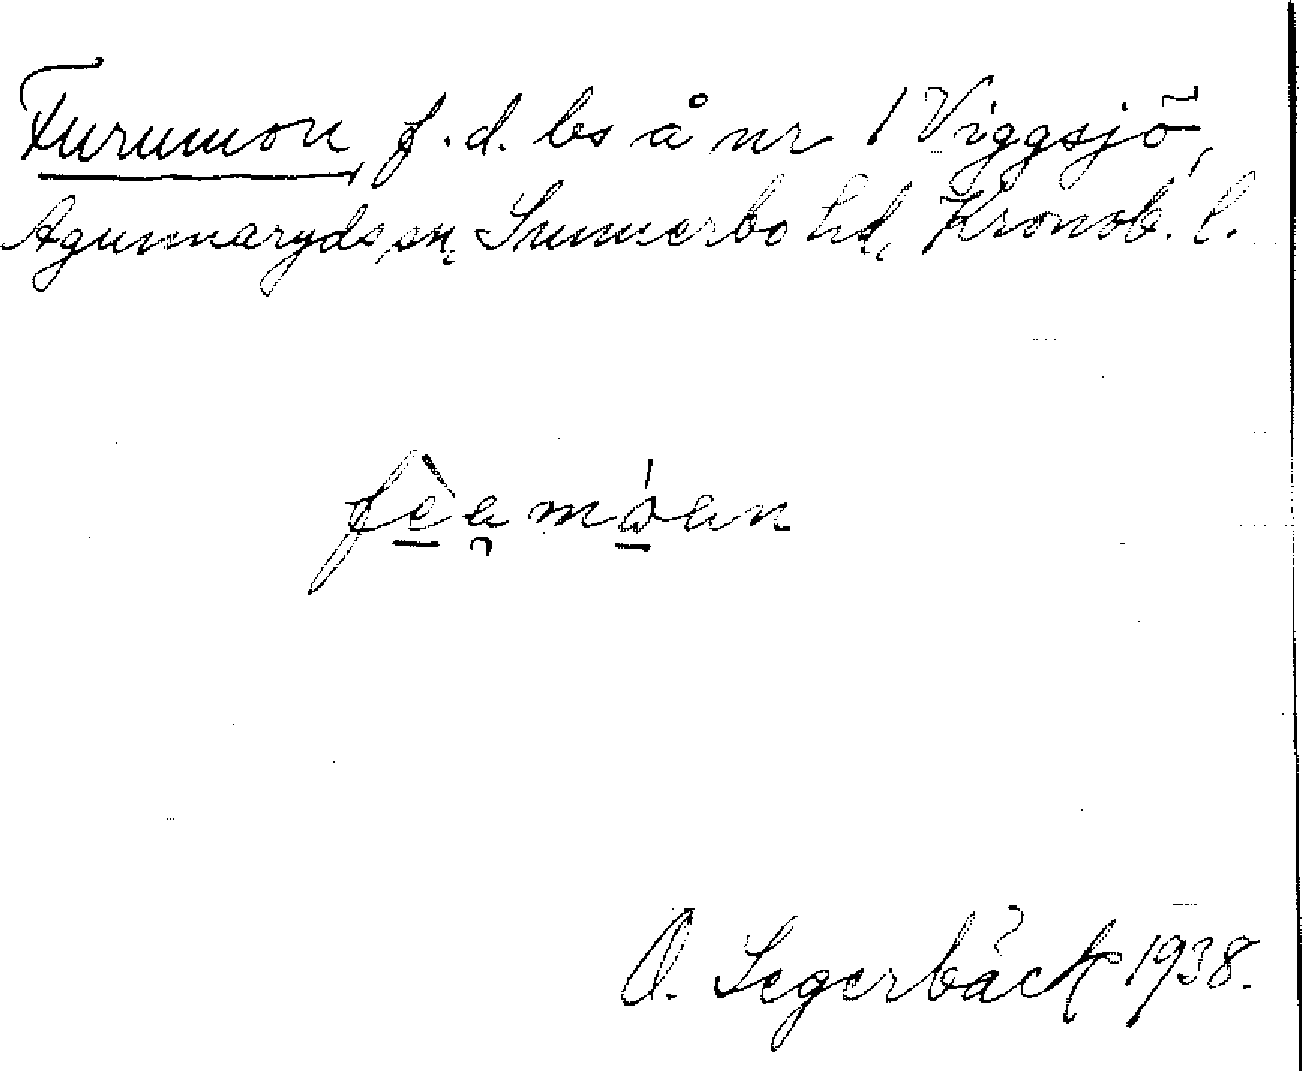 Furumon, f. d. bs å nr 1 Viggsjö,
Agunnaryds sn, Sunnerbo hd, Kronob. l.
O. Segerbäck 1938.